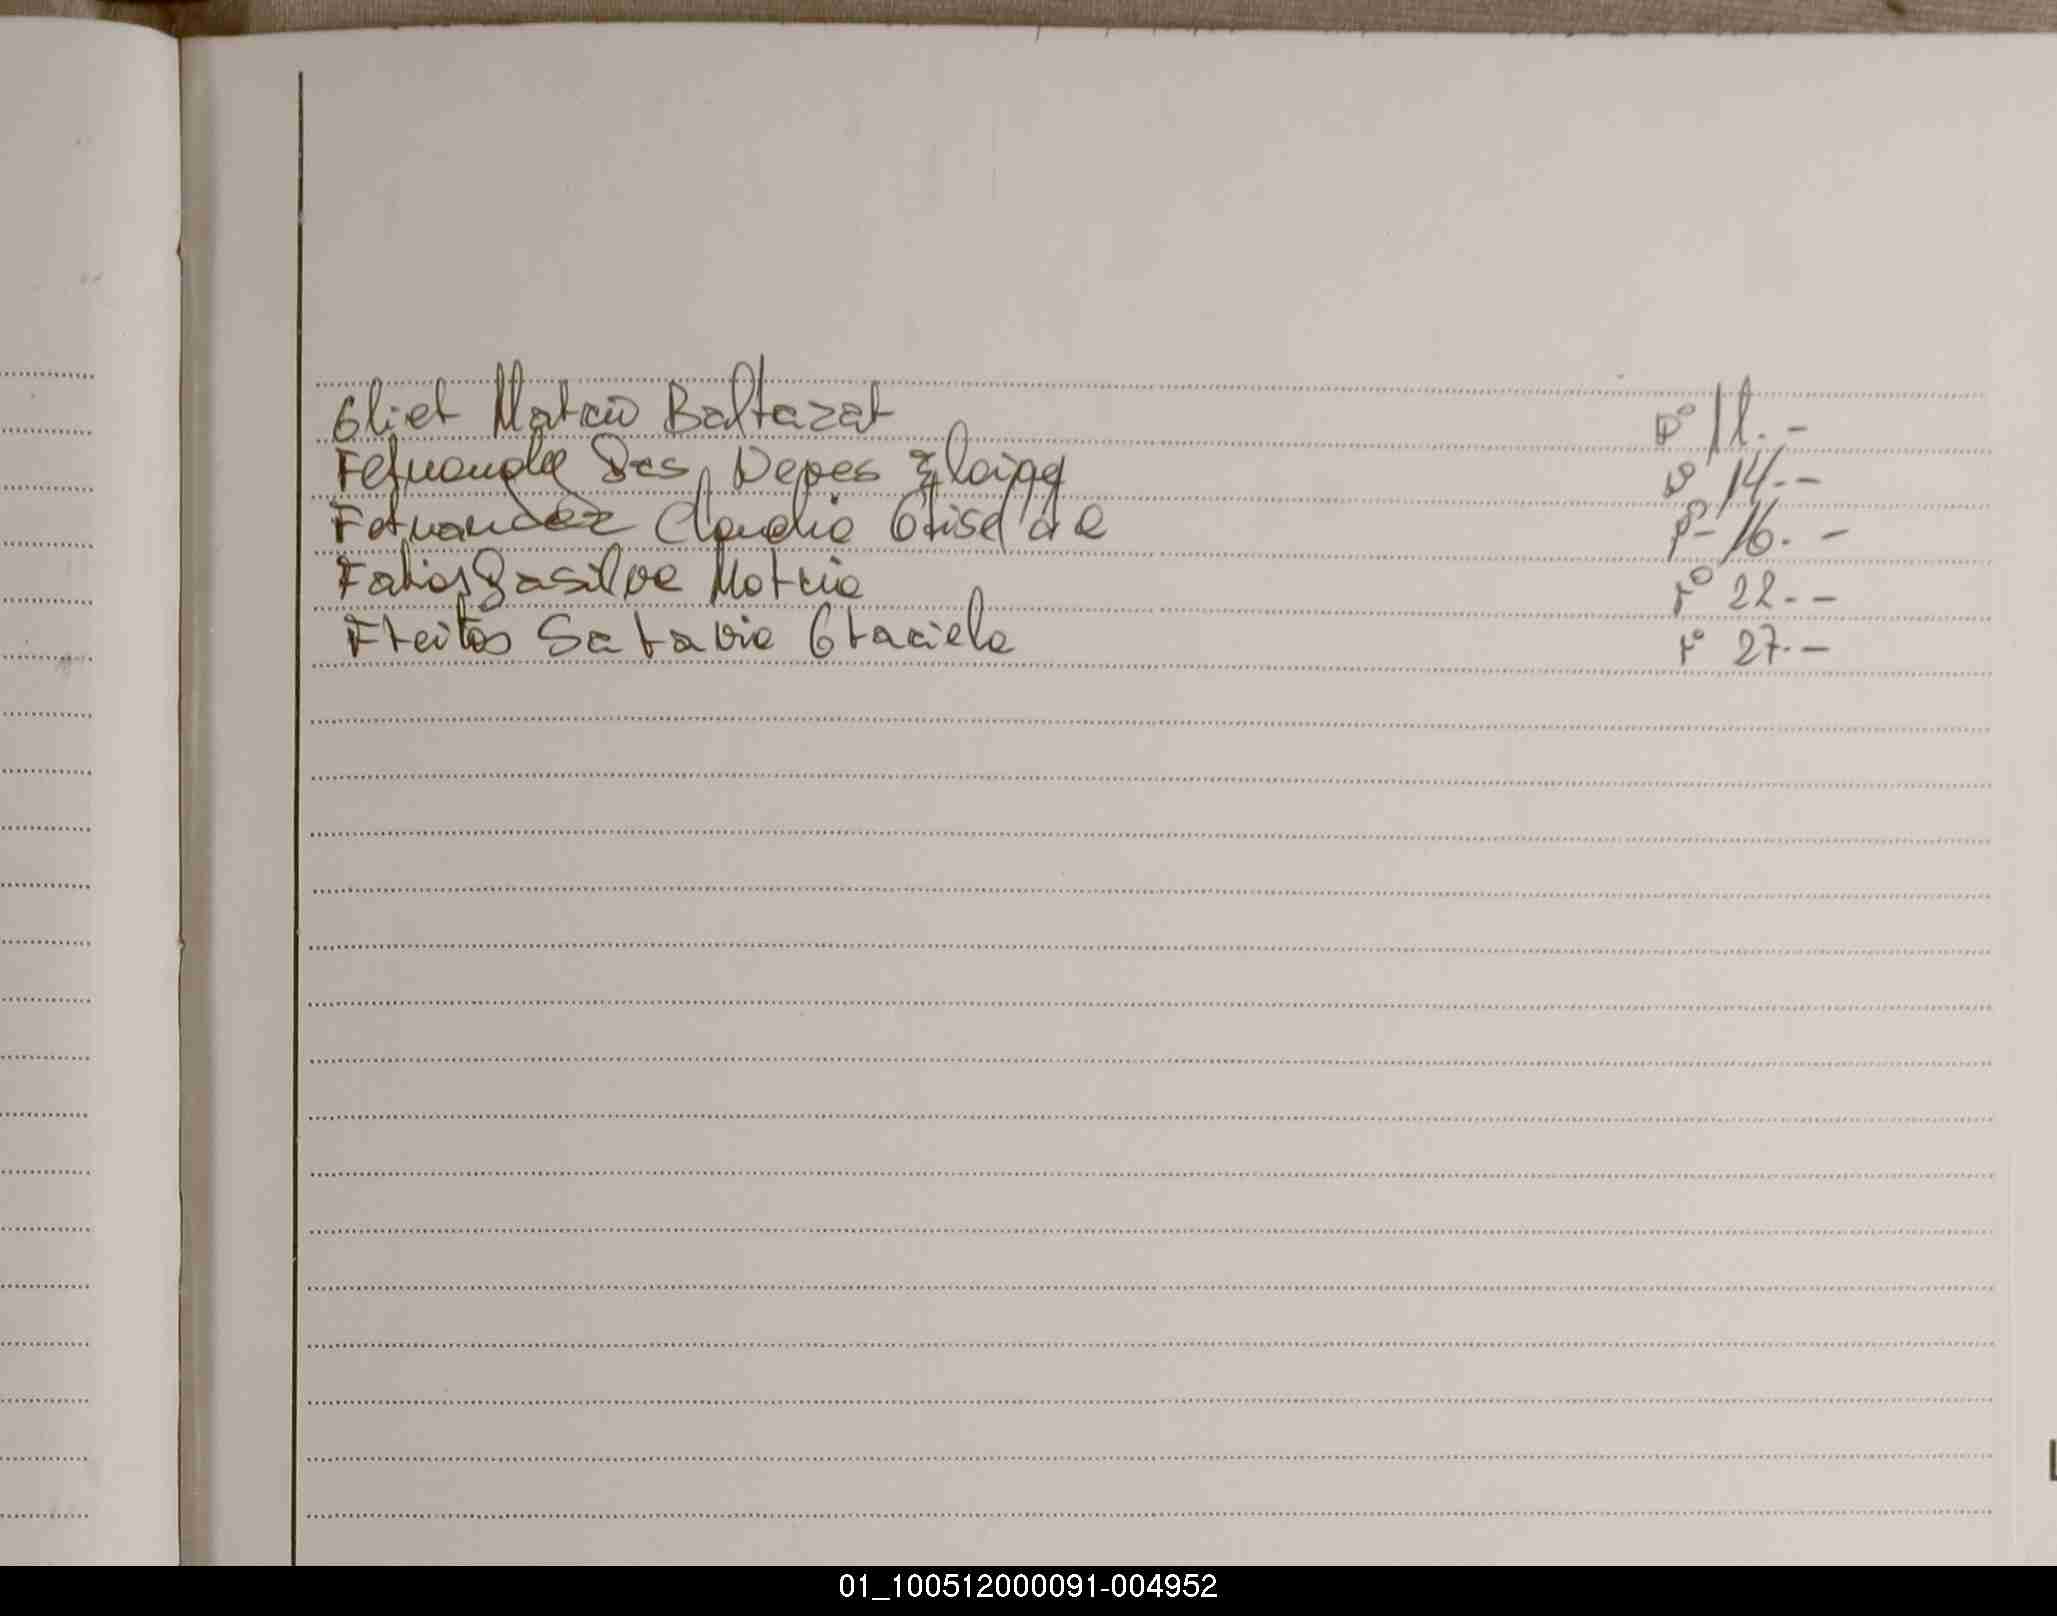 Glier Marcio Baltazar Fº 11.-
Fernande Das Neves Fº 14.-
Fernandez Claudia Griselda Fº 16.-
Farias Da silva Marcia Fº 22.-
Freitas Saravia Graciela Fº 27.-
01_100512000091-004952